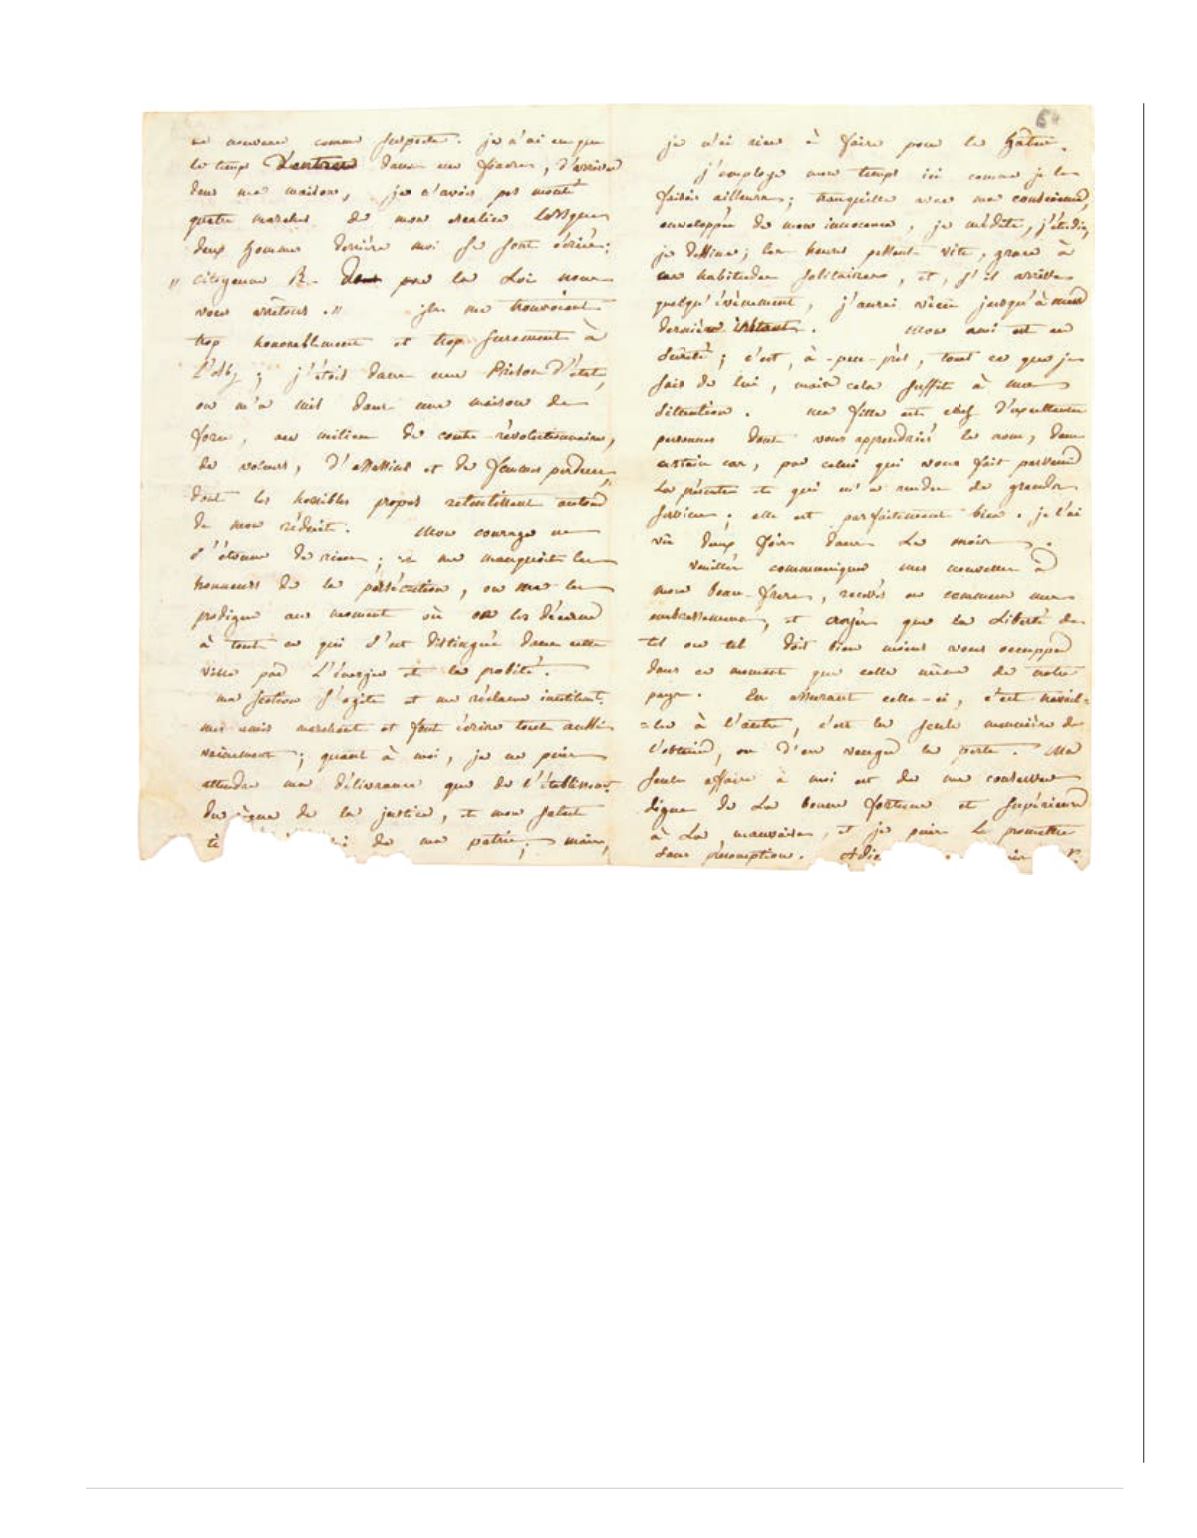 de nouveau comme suspecte. je n'ai eu que
le temps d'entrer dans un fiacre, d'arriver
dans ma maison, je n'avois pas monté
quatre marches de mon escalier lorsque
deux hommes derrière moi se sont écriés:
" citoyenne R. par la Loi nous
vous arrêtons." ils me trouvoient
trop honorablement et trop surement à
l'Abb; j'étois dans une Prison d'état,
on m'a mis dans une maison de
force, au milieu de contre-révolutionnaires,
de voleurs, d'assassins et de femmes perdues,
dont les horribles propos retentissent autour
de mon réduit. Mon courage ne
s'étonne de rien; il me manquoit les
honneurs de la persécution, on me les
prodigue au moment où on les décerne
à tout ce qui s'est distingué dans cette
ville par l'énergie et la probité.
ma section s'agite et me réclame inutilemt.
mes amis marchent et font écrire tout aussi
vainement; quant à moi, je ne puis
attendre ma délivrance que de l'établissemt.
du règne de la justice, et mon salut
de ma patrie; mais,
64
je n'ai rien à faire pour le hâter.
j'employe mon temps ici comme je le
faisois ailleurs; tranquille avec ma conscience,
enveloppée de mon innocence, je médite, j'étudie,
je dessine; les heures passent vite, grace à
ces habitudes solitaires, et, s'il arrive
quelqu'événement, j'aurai vécu jusqu'à mon
dernier instant. Mon ami est en
sûreté; c'est, à-peu-près, tout ce que je
sais de lui, mais cela suffit à ma
situation. ma fille est chez d'excellentes
personnes dont vous apprendriés le nom, dans
certain cas, par celui qui vous fait parvenir
la présente et qui m'a rendu de grands
services; elle est parfaitement bien. je l'ai
vu deux fois dans le mois.
Veuillés communiquer mes nouvelles à
mon beau-frere, recevés en commun mes
embrassemens, et croyés que la Liberté de
tel ou tel doit bien moins vous occuper
dans ce moment que celle même de notre
pays. En assurant celle-ci, c'est travail=
=ler à l'autre, c'est la seule manière de
l'obtenir, ou d'en venger la perte. Ma
seule affaire à moi est de me conserver
digne de la bonne fortune et supérieure
à la mauvaise, et je puis le promettre
sans présomption. Adie